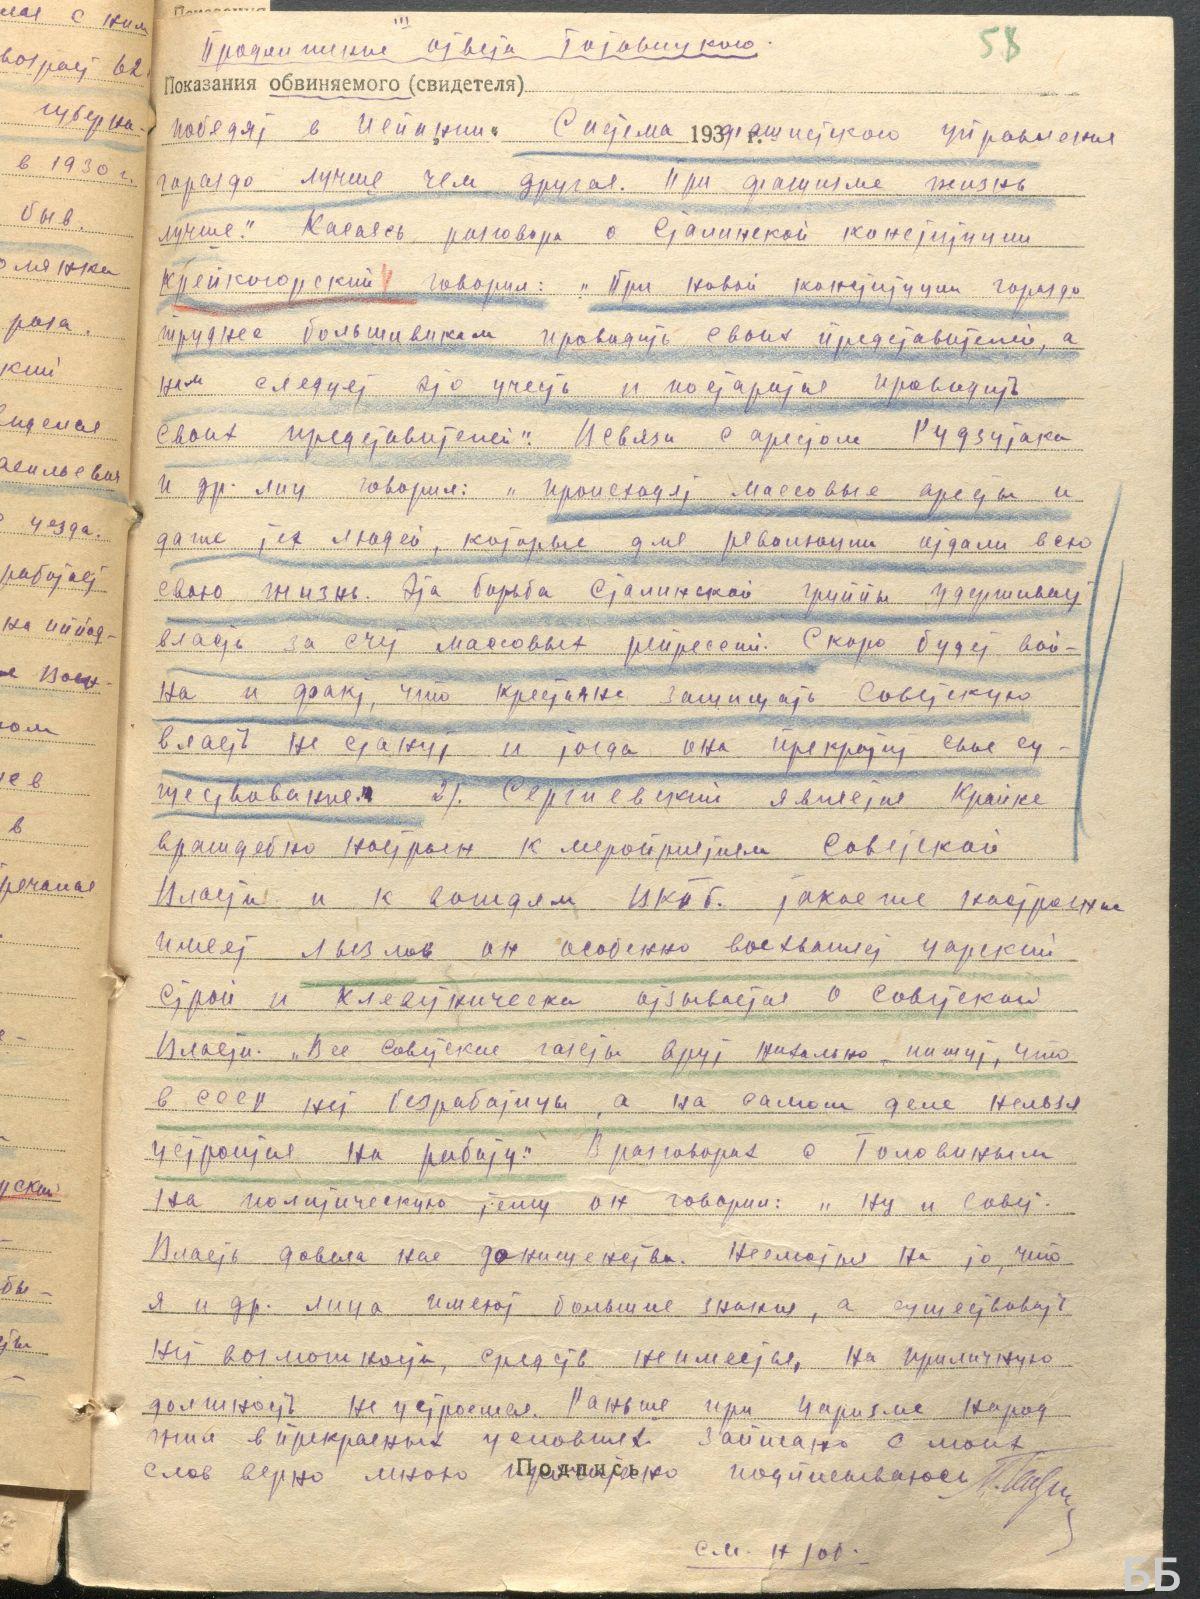 III
58
Продолжение ответа
Показания обвиняемого (свидетеля)
победят в Испании. Система фашистского управления
193 г.
гораздо лучше чем другая. При фашизме жизнь
лучше." Касаясь разговора о Сталинской конституции
Крейкогорский говорил: "При новой конституции гораздо
труднее большевикам проводить своих представителей, а
нам следует это учесть и постаратся проводить
своих представителей". В связи с арестом Рудзутака
и др. лиц говорил: "происходят массовые аресты и
даже тех людей, которые для революции отдали всю
свою жизнь. Эта борьба Сталинской группы удерживает
власть за счет массовых репрессий. Скоро будет вой-
на и факт, что крестьяне защищать Советскую
власть не станут и тогда она прекратит свое су-
ществование." 2/. Сергиевский является крайне
враждебно настроен к мероприятиям Советской
Власти и к вождям ВКПб. такое же настроение
имеет Лызлов он особенно восхваляет царский
строй и клеветнически отзывается о Советской
Власти. "Все советские газеты врут нахально пишут, что
в СССР нет безработицы, а на самом деле нельзя
устроится на работу". В разговорах с Головиным
на политическую тему он говорил: "ну и Совет.
Власть довела нас до нищенства. Несмотря на то, что
я и др. лица имеют большие знания, а существовать
нет возможности, средств не имеется, на приличную
должность не устроешся. Раньше при царизме народ
жил в прекрасных условиях. Записано с моих
слов верно мною прочитано подписываюсь
Подпись
см. н/об.
ББ